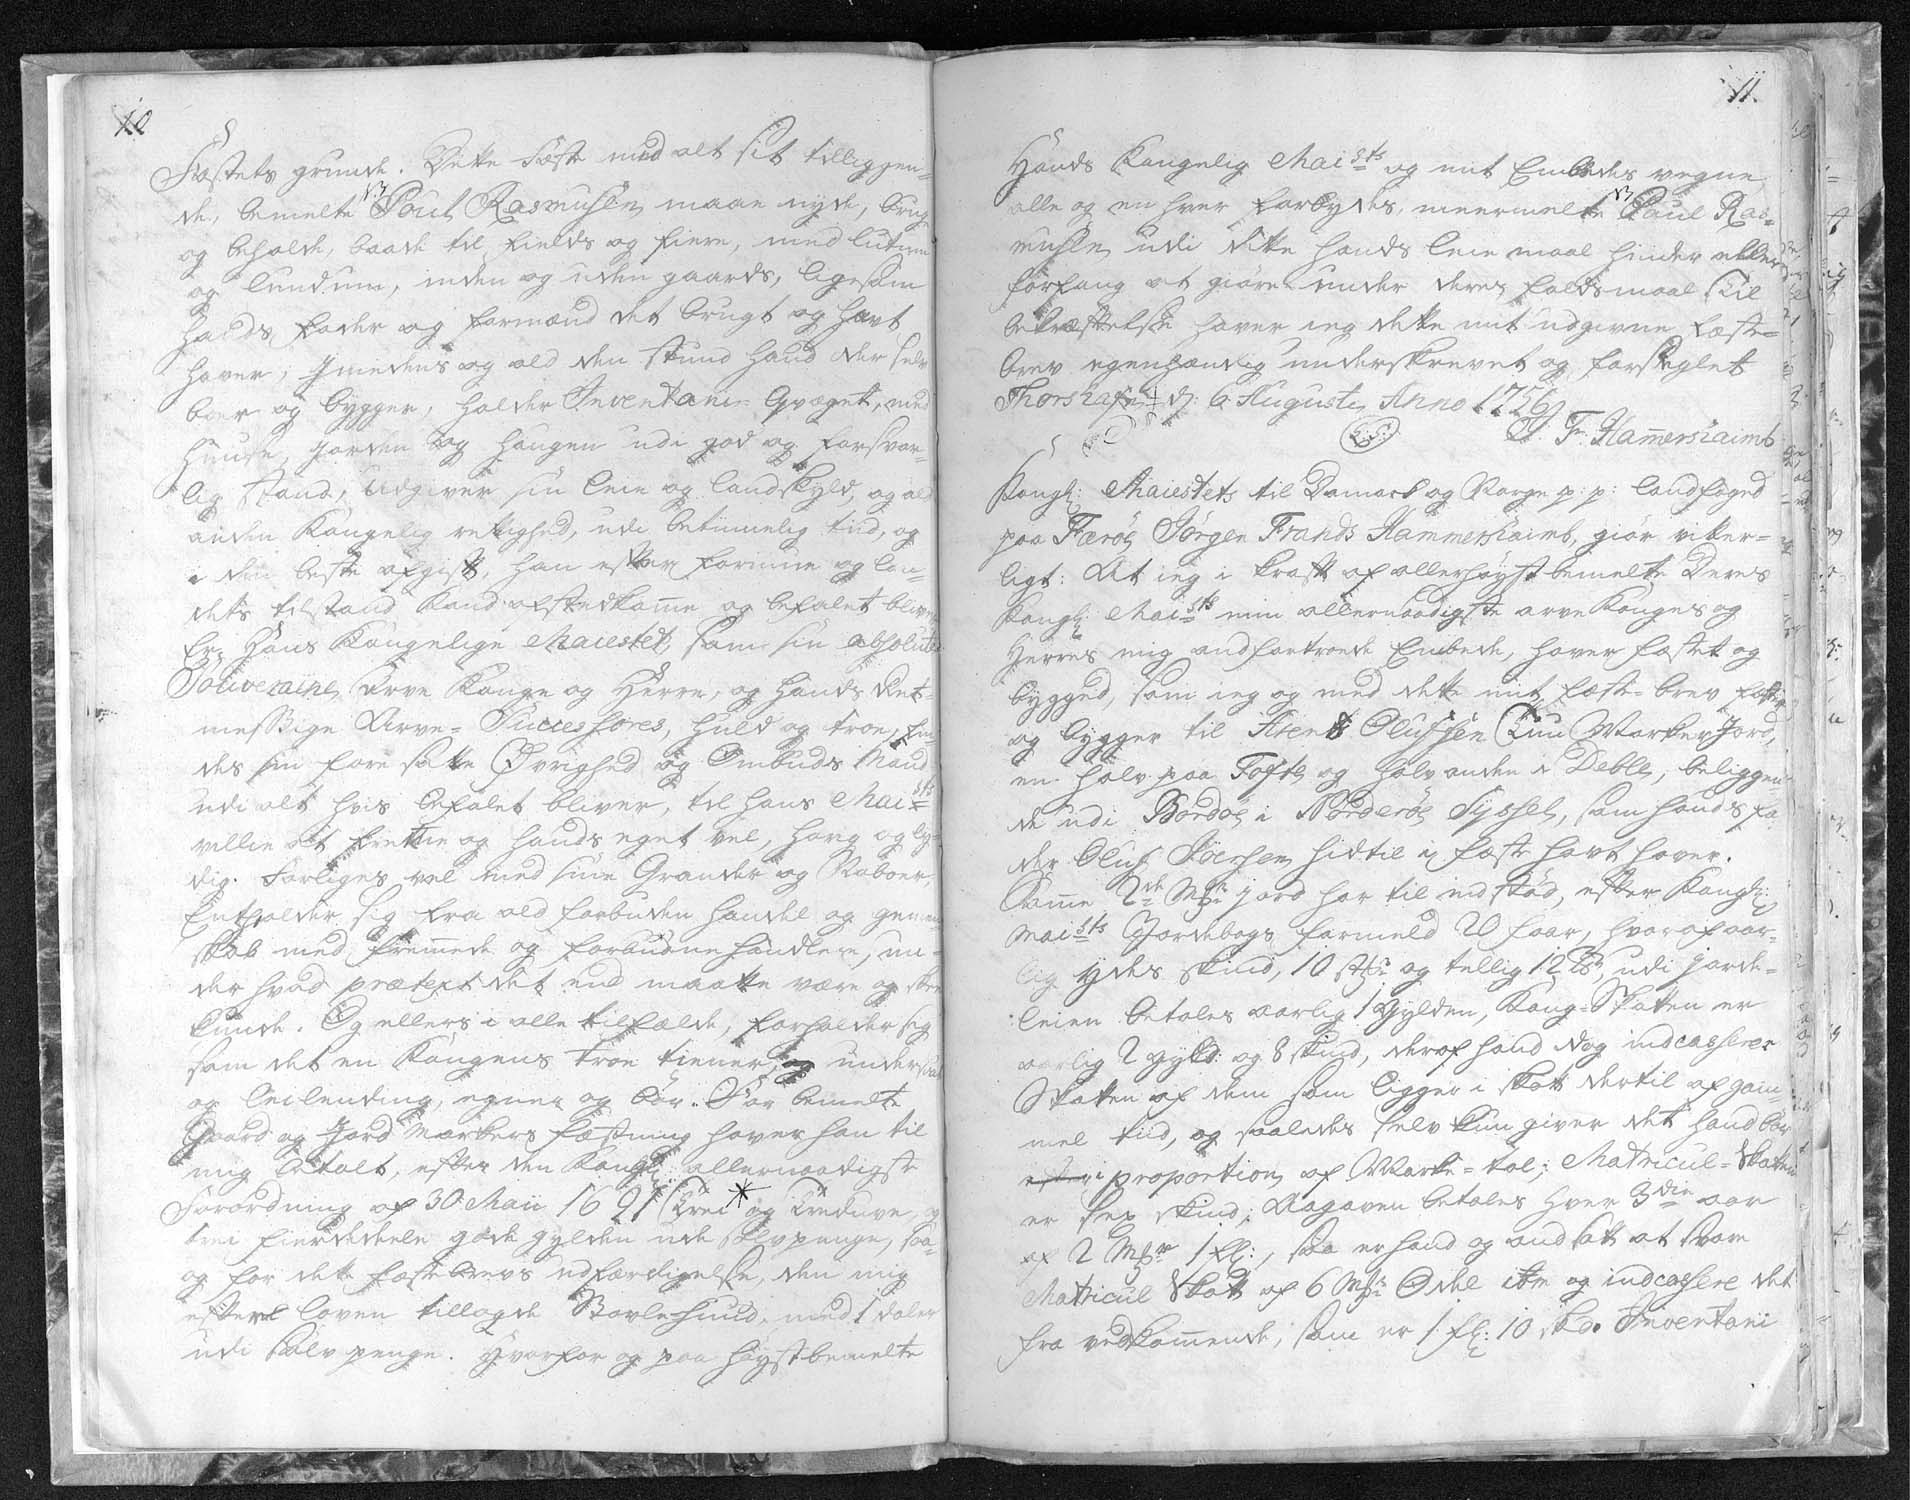 10
Fæstets grunde. Dette Fæste med alt sit tilliggen=
de, bemelte Poul Rasmusen maae nyde, bruge
og beholde, baade til Fields og fiere, med lutum
og lundum, inden og uden gaards, ligesom
hands fader og formænd det brugt og havt
haver, Imedens og ald den stund hand der selv
boer og bygger, holder Inventarii Qvæget, med
Huuse, Jorden og Haugen udi god og forsvar=
lig stand, Udgiver sin leie og landskyld, og ald
anden Kongelig rettighed, udi betimelig tiid, og
i den beste afgift, han efter formue og lan=
dets tilstand kand afstedkome og befalet bliver
Er Hans Kongelige Maiestet, som sin absolute
Souveraine Arve Konge og Herre, og hands Ret=
messige Arve= Successores, huld og troe,
des sin fore satte Øvrighed og Ombuds Mænd
udi alt hvis befalet bliver, til hans Mai sts
villie at fremme og hands eget vel, hørig og ly=
dig. Forliges vel med sine Grander og Naboer,
Entholder sig fra ald forbuden handel og gemeen
skab med fremede og forbudne handlere, un=
der hvad prætext det end maatte være og skee
kunde. Og ellers i alle tilfælde, forholder sig
som det en Kongens troe tiener, og undersaat
og leilending, egner og bør. For bemelte
Gaard og Jord Markers fæstning haver han til
mig betalt, efter den Kongl: allernaadigste
Forordning af 30 Maii 1691 Trei * og Treduve, og
trei fierdedeele gode gylden udi sølvpenge, saa
og for dette fæstebrevs udfærdigelse, den mig
efter loven tillagde Bovlehuud, med 1 daler
udi sølv penge. Hvorfor og paa høystbemelte
11.
Hands Kongelig Mai sts og mit Embedes vegne
alle og en hver forbydes, meermelte Paul Ras=
musen udi dette hands leiemaal hinder eller
forfang at giøre under deres faldsmaal Til
bekræftelse haver ieg dette mit udgivne fæste=
brev egenhændig underskrevet og forseglet
Thorshafn d: 6 Augusti Anno 1756
(L.S.) F. Hamershaimb
Kongl: Maiestets til Danmark og Norge p: p: landfoged
paa Færøe Jørgen Frands Hammershaimb, giør viter=
ligt: At ieg i kraft af allerhøyst bemelte Deres
Kongl: Mai sts min allernaadigste arve Konges og
Herres mig andfortroede Embede, haver fæstet og
bygged, som ieg og med dette mit fæste=brev fæster
og bygger til Olufsen Tuu Marker Jord,
en halv paa Tofte og halvanden i Deble, beliggen
de udi Bordøe i Norderøe Syssel, som hands fa=
der Oluf Joensen hidtil i fæste havt haver.
Same 2de Mrk jord har til indstød, efter Kongl:
Mai sts Jordebogs formeld 20 faar, hvoraf aar=
lig ydes skind, 10 og tellig 12 udi jorde=
leien betales aarlig 1 Gylden, Kong=Skatten er
aarlig 2 gyld: og 8 skind, deraf hand dog indcassere
Skatten af dem som ligger i skatt dertil af gam=
mel tiid, og saaledes selv kun giver det hand bør
i proportion af Marke=tal; Matricul=Skatten
er sex skind; Aagaven betales hver 3die aar
af 2 Mrk 1 fl:, saa er hand og and satt at svare
Matricul Skatt af 6 Mrk Odel itm og indcassere det
fra vedkomende, som er 1 fl: 10 skd. Inventarii